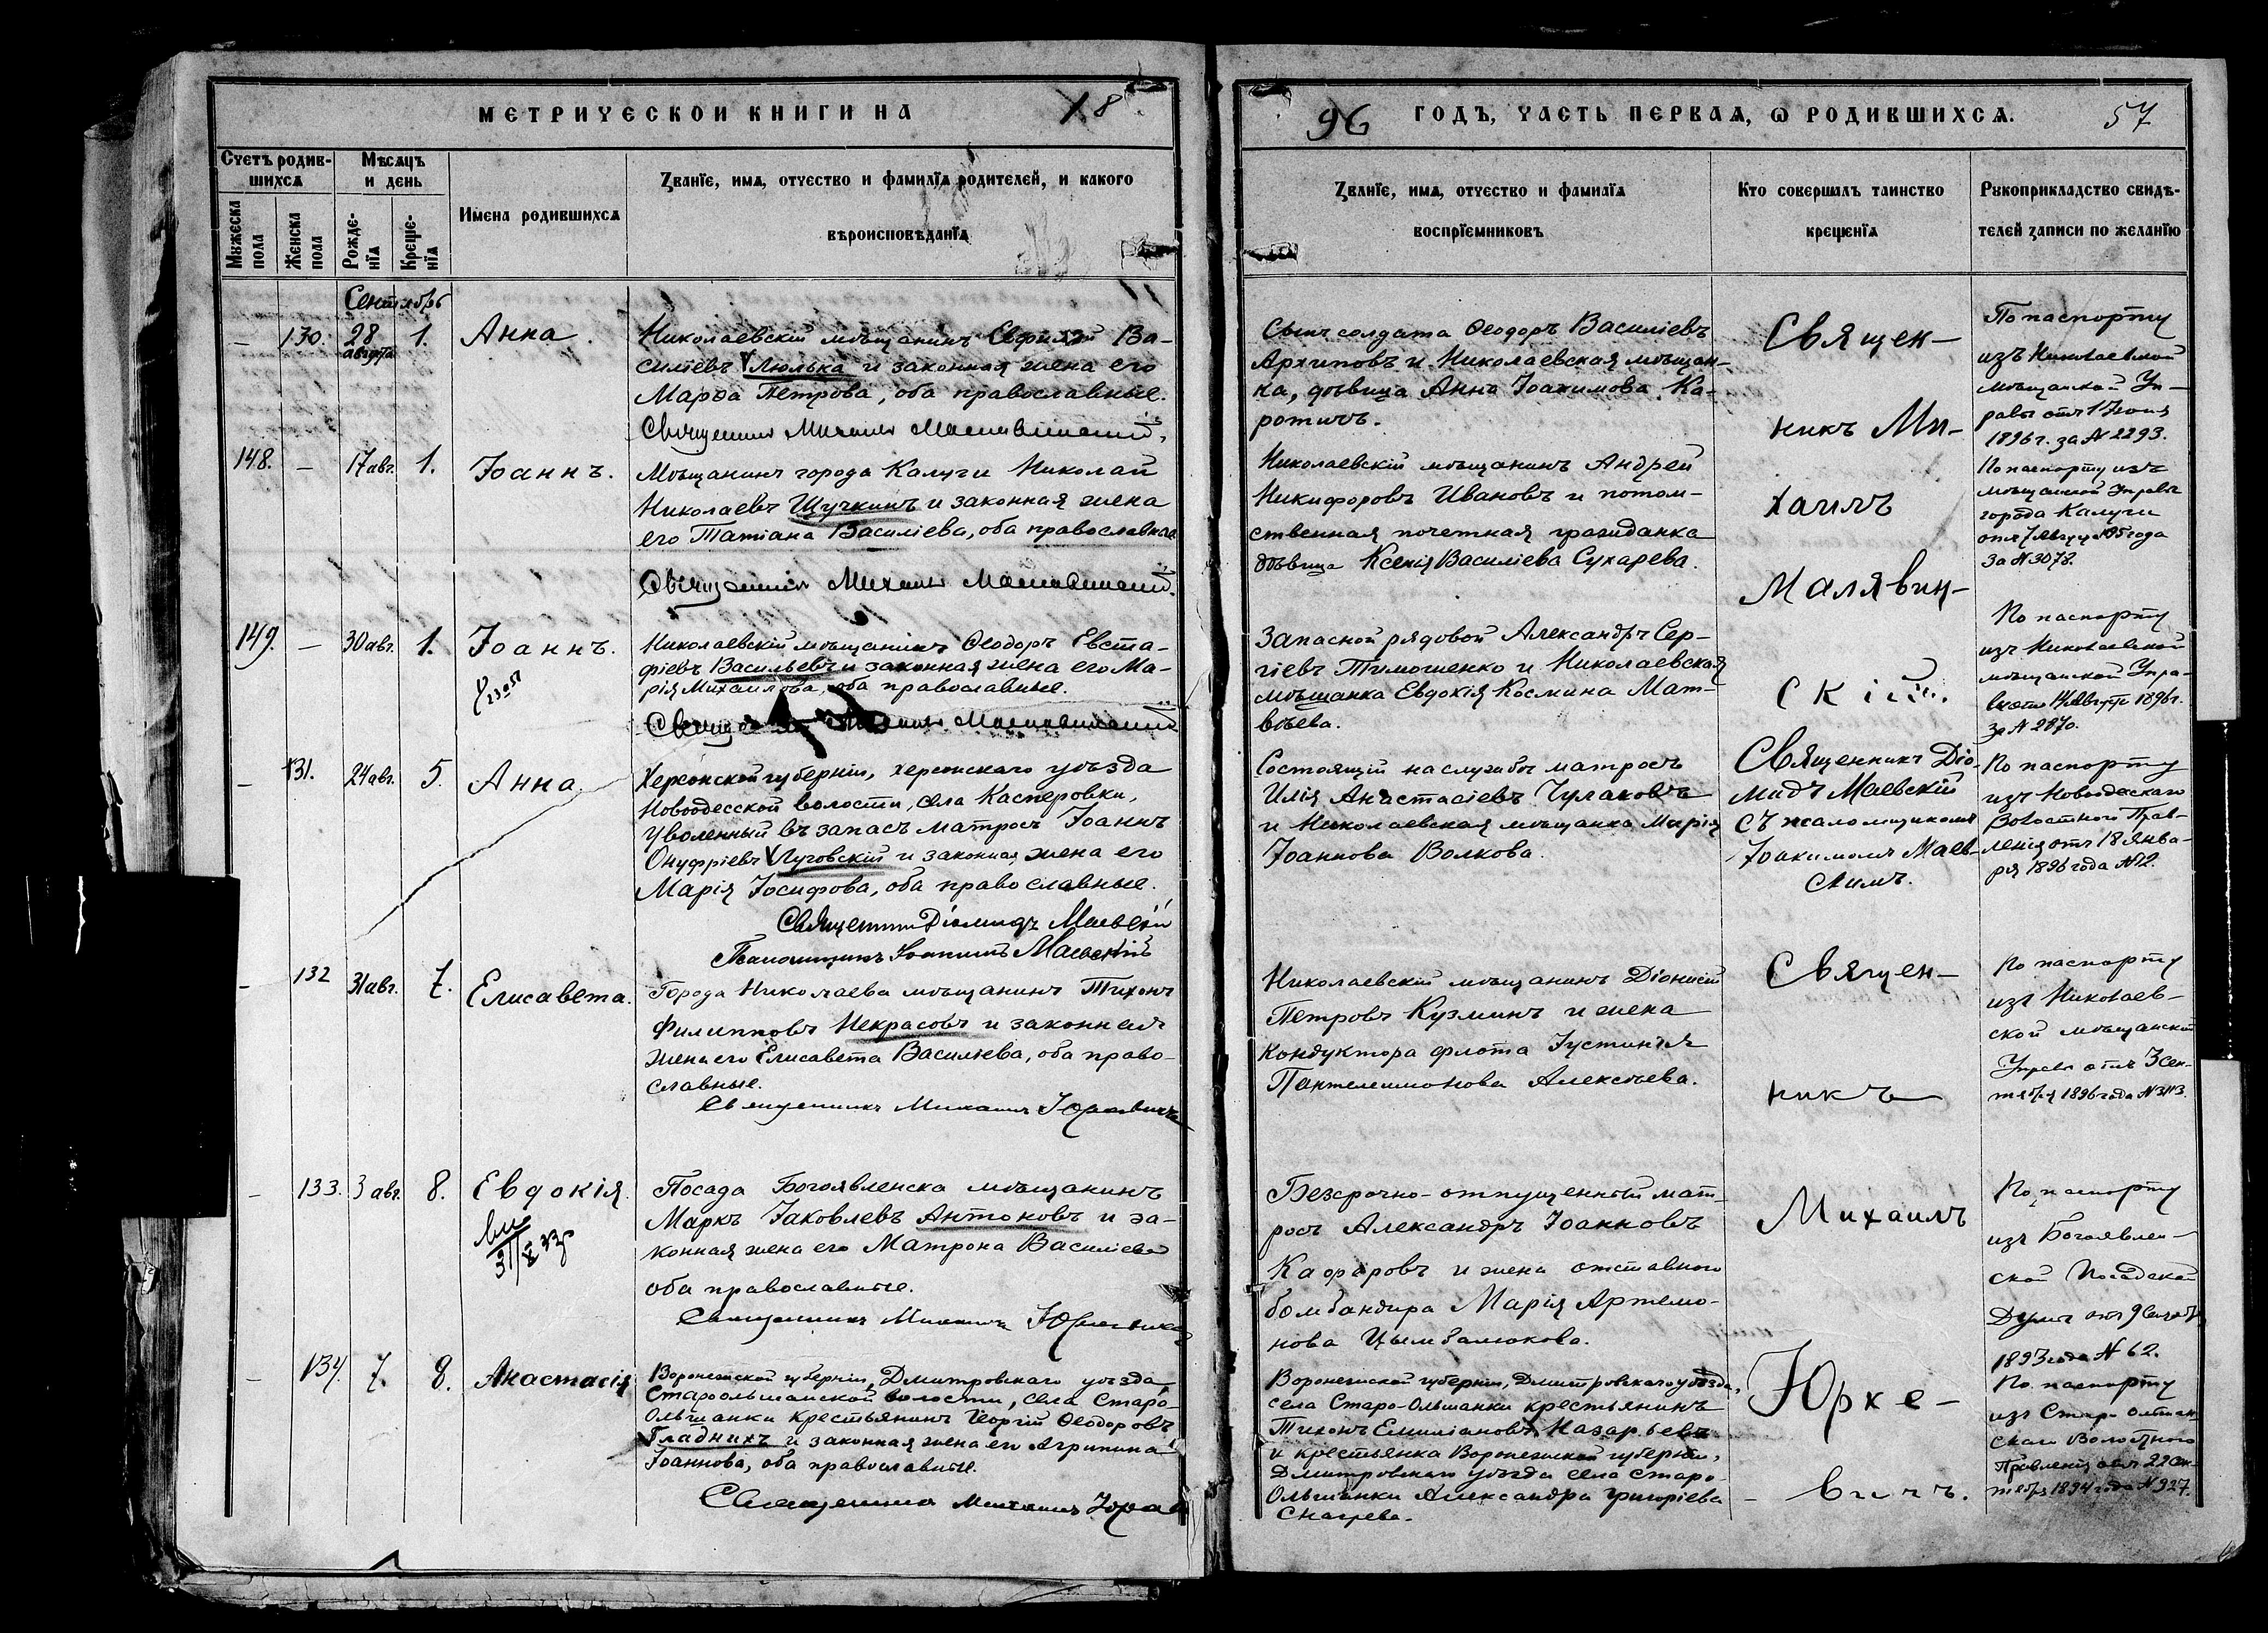 МЕТРИЧЕСКОЙ КНИГИ НА 18
96 ГОДЪ, ЧАСТЬ ПЕРВАѦ, Ѡ РОДИВШИХСѦ. 57
Счетъ родив-
шихсѧ
Мѣсѧцъ
и день
Мужеска
пола
Женска
пола
Рожде-
нїѧ
Креще-
нїѧ
Имена родившихсѧ
Званїе, имѧ, отчество и фамилїѧ родителей, и какого
вѣроисповѣданїѧ
Званїе, имѧ, отчество и фамилїѧ
воспрїемниковъ
Кто совершалъ таинство
крещенїѧ
Рукоприкладство свидѣ-
телей записи по желанїю
Сентябрь
— 130. 28 августа 1. Анна.
Николаевскій мѣщанинъ Евфимій Ва-
силіевъ Люлька и законная жена его
Марѳа Петрова, оба православные.
Священникъ Михаилъ Малявинскій.
Сынъ солдата Ѳеодоръ Василіевъ
Архиповъ и Николаевская мѣщан-
ка, дѣвица Анна Іоакимова Ка-
ротичъ.
Священ-
никъ Ми-
хаилъ
Малявин-
скій.
По паспорту
изъ Николаевской
мѣщанской Уп-
равы отъ 1 Іюня
1896 г. за № 2293.
148. — 17 авг. 1. Іоаннъ.
Мѣщанинъ города Калуги Николай
Николаевъ Щучкинъ и законная жена
его Татіана Василіева, оба православные
Священникъ Михаилъ Малявинскій.
Николаевскій мѣщанинъ Андрей
Никифоровъ Ивановъ и потом-
ственная почетная гражданка
дѣвица Ксенія Василіева Сухарева.
По паспорту изъ
мѣщанской Управы
города Калуги
отъ 7 Августа 1895 года
за № 3078.
149. — 30 авг. 1. Іоаннъ.
Николаевскій мѣщанинъ Ѳеодоръ Евста-
фіевъ Васильевъ и законная жена его Ма-
рія Михаилова, оба православные.
Священникъ Михаилъ Малявинскій
Запасной рядовой Александръ Сер-
гіевъ Тимошенко и Николаевская
мѣщанка Евдокія Космина Мат-
вѣева.
По паспорту
изъ Николаевской
мѣщанской Упра-
вы отъ 14 Августа 1896 г.
за № 2870.
— 131. 24 авг. 5. Анна.
Херсонской губерніи, херсонскаго уѣзда
Новоодесской волости, села Касперовки,
уволенный въ запасъ матросъ Іоаннъ
Онуфріевъ Луговскій и законная жена его
Марія Іосифова, оба православные.
Священникъ Діомидъ Маевскій
Псаломщикъ Іоакимъ Маевскій
Состоящій на службѣ матросъ
Илія Анастасіевъ Чулаковъ
и Николаевская мѣщанка Марія
Іоаннова Волкова.
Священникъ Діо-
мидъ Маевскій
съ псаломщикомъ
Іоакимомъ Маев-
скимъ.
По паспорту
изъ Новоодесскаго
Волостного Прав-
ленія отъ 18 Янва-
ря 1896 года № 12.
— 132 31 авг. 7. Елисавета.
Города Николаева мѣщанинъ Тихонъ
Филипповъ Некрасовъ и законная
жена его Елисавета Василіева, оба право-
славные.
Священникъ Михаилъ Юркевичъ
Николаевскій мѣщанинъ Діонисій
Петровъ Кузминъ и жена
кондуктора флота Іустинія
Пантелеимонова Алексѣева.
Священ-
никъ
Михаилъ
Юрке-
вичъ.
По паспорту
изъ Николаев-
ской мѣщанской
Управы отъ 3 Сен-
тября 1896 года № 3113.
— 133. 3 авг. 8. Евдокія.
Посада Богоявленска мѣщанинъ
Маркъ Іаковлевъ Антоновъ и за-
конная жена его Матрона Василіева
оба православные.
Священникъ Михаилъ Юркевичъ
Безсрочно-отпущенный мат-
росъ Александръ Іоанновъ
Кафаровъ и жена отставного
бомбандира Марія Артемо-
нова Цымбалюкова.
По паспорту
изъ Богоявлен-
ской Посадской
Думы отъ 9
1893 года № 62.
— 134. 7. 8. Анастасія
Воронежской губерніи, Дмитровскаго уѣзда,
Староольшанской волости, села Старо-
Ольшанки крестьянинъ Георгій Ѳеодоровъ
Гладнихъ и законная жена его Агрипина
Іоаннова, оба православные.
Священникъ Михаилъ
Воронежской губерніи, Дмитровскаго уѣзда,
села Старо-Ольшанки крестьянинъ
Тихонъ Емиліановъ Назарьевъ
и крестьянка Воронежской губерніи,
Дмитровскаго уѣзда села Старо-
Ольшанки Александра Григоріева
Снагрева.
По паспорту
изъ Старо-ольшан-
скаго Волостного
Правленія отъ 22
1894 года № 927.